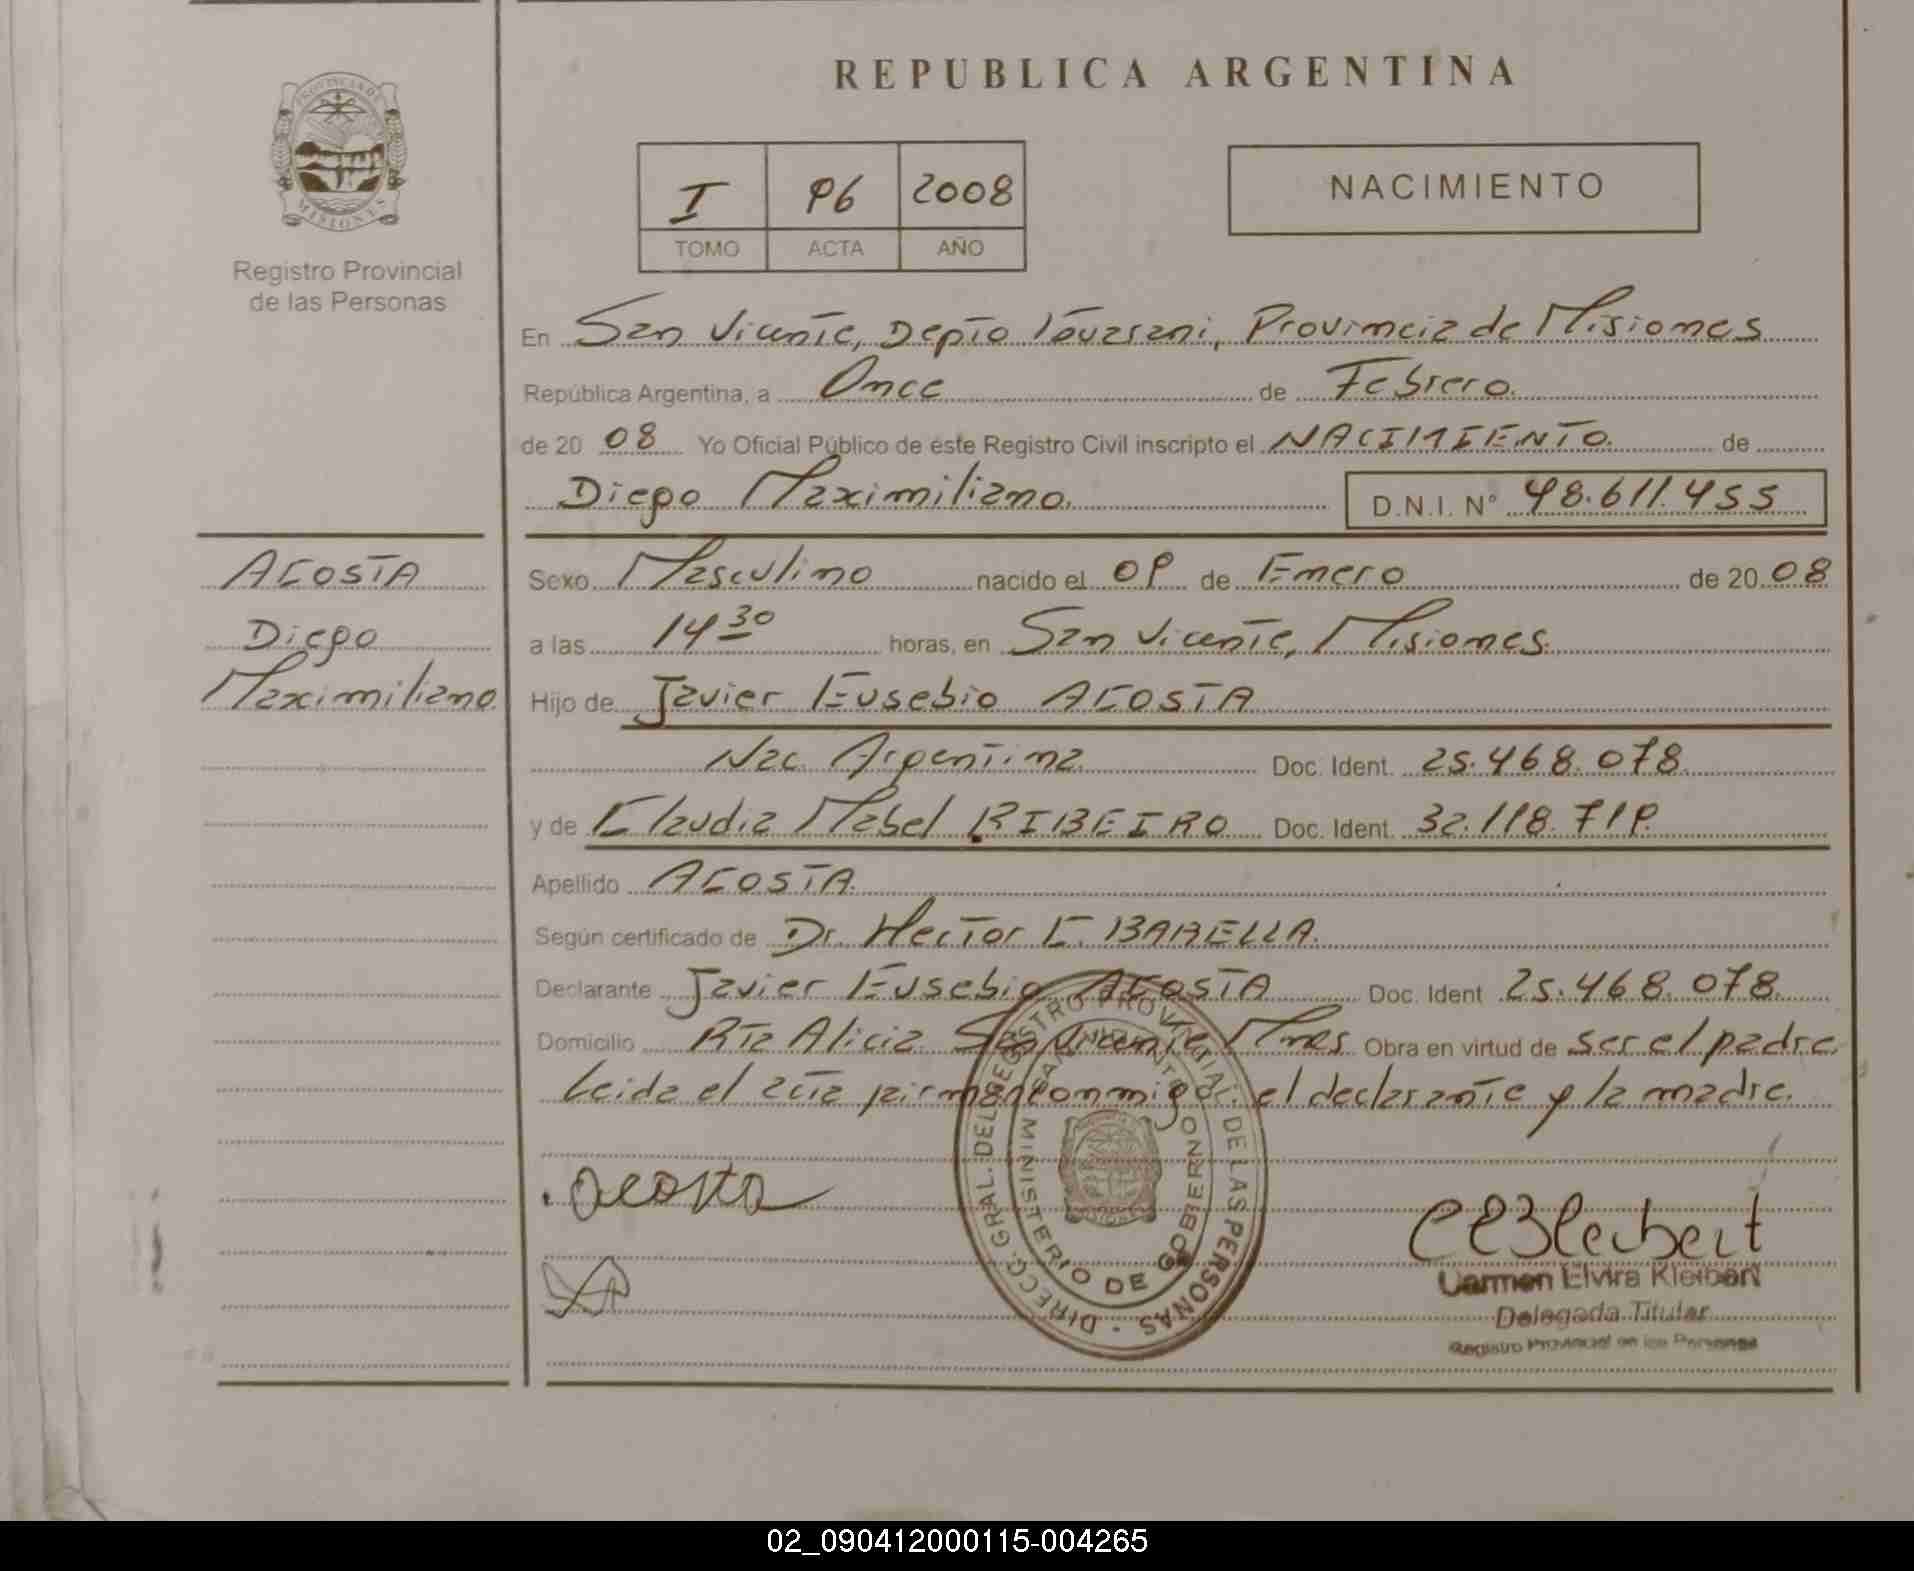 REPUBLICA ARGENTINA
PROVINCIA DE
MISIONES
Registro Provincial
de las Personas
I 96 2008
TOMO ACTA AÑO
NACIMIENTO
En San Vicente, Depto Guarani, Provincia de Misiones
República Argentina, a Once de Febrero.
de 20 08 Yo Oficial Público de éste Registro Civil inscripto el NACIMIENTO. de
Diego Maximiliano. D.N.I. N° 48.611.455
ACOSTA
Diego
Maximiliano.
Sexo Masculino nacido el 09 de Enero de 20 08
a las 14 30 horas, en San Vicente, Misiones.
Hijo de Javier Eusebio ACOSTA
Nac. Argentina. Doc. Ident. 25.468.078.
y de Claudia Mabel RIBEIRO Doc. Ident. 32.118.719.
Apellido ACOSTA.
Según certificado de Dr. Hector C. BARELLA.
Declarante Javier Eusebio ACOSTA Doc. Ident 25.468.078.
Domicilio Rta Alicia San Vicente Mnes Obra en virtud de ser el padre.
Leida el acta firman conmigo el declarante y la madre.
DIRECC. GRAL. DEL REGISTRO PROVINCIAL DE LAS PERSONAS
MINISTERIO DE GOBIERNO
acosta
CEKleibert
Carmen Elvira Kleibert
Delegada Titular
Registro Provincial de las Personas
02_090412000115-004265